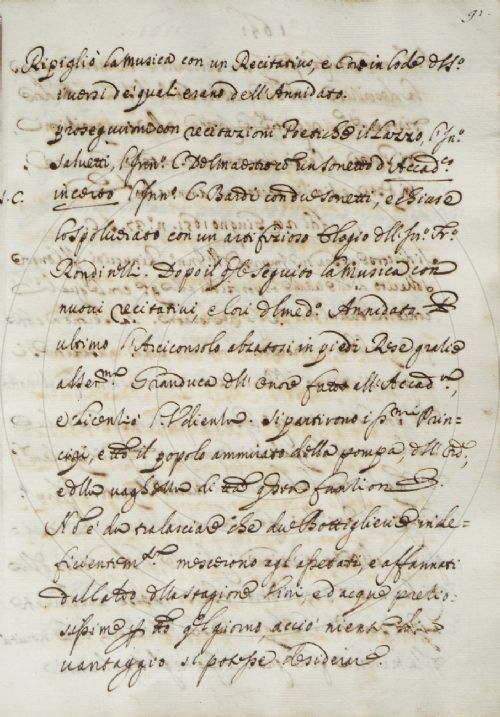 91.
Ripigliò la Musica con un Recitativo, e Coro in lode dell'
i versi de i quali erano dell'Annidato.
proseguirono con recitazioni Poetiche il Lazzo, l'
Salvetti, l' C. Del maestro co un sonetto d'Accad.co
N.C. incerto l' C. Bardi con due sonetti, e chiuse
lo spolverato con un artifizioso Elogio dell' Fr.o
Rondinelli. Dopo il q.le seguitò la Musica con
nuovi recitativi, e Cori del med.o Annidato.
ultimo l'Arciconsolo alzatosi in piedi Rese grazie
al Ser.mo Granduca dell'onore fatto all'Accad.
e licenziò l'Udienza. si partirono i Prin-
cipi, e il popolo ammirato della pompa, dell'
e della vaghezza di opera funzione.
Non è da tralasciare che due Bottiglierie inde-
ficientem.te mescerono agl'assetati, e affannati
dal caldo della stagione Vini, ed acque pretio-
sissime quel giorno, acciò niente
vantaggio si potesse desiderare.